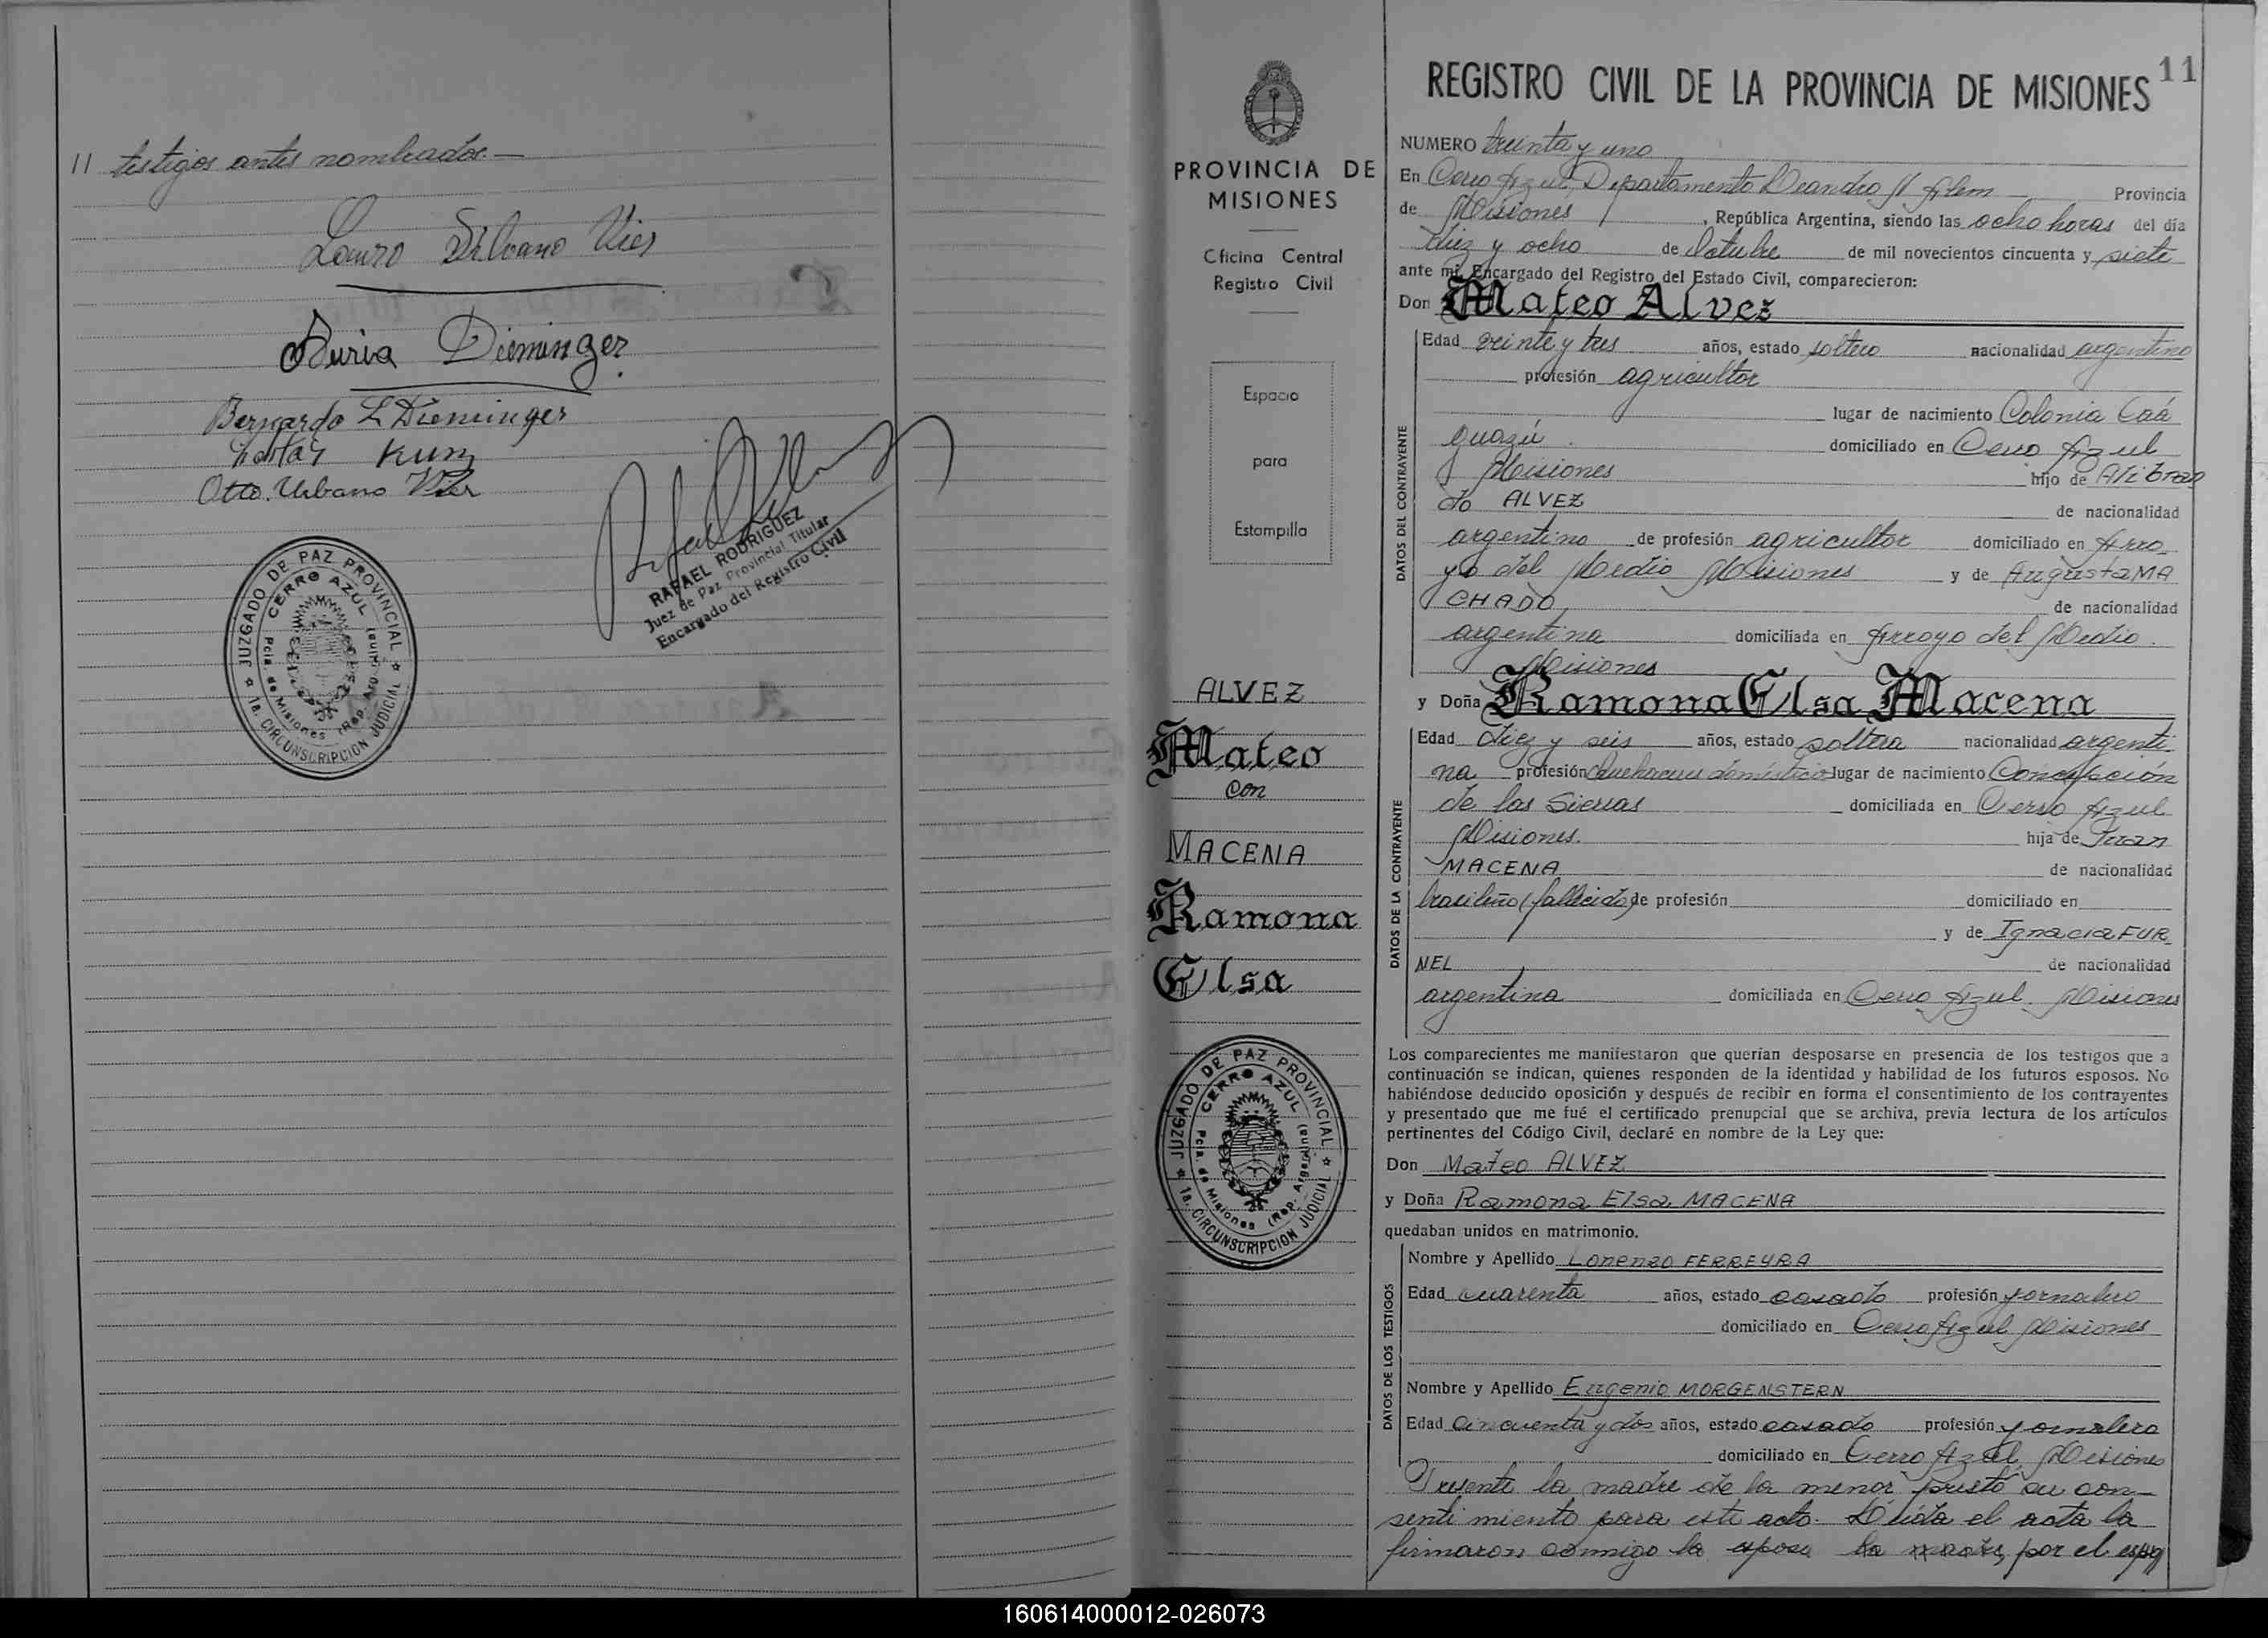 11 testigos antes nombrados.—
Lauro Silvano Vier
Nuria Dieminger
Bernardo L Dieminger
Kunz
Otto Urbano Vier
RAFAEL RODRIGUEZ
Juez de Paz Provincial Titular
Encargado del Registro Civil
JUZGADO DE PAZ PROVINCIAL
CERRO AZUL
Pcia. de Misiones (Rep. Argentina)
1a. CIRCUNSCRIPCION JUDICIAL
PROVINCIA DE
MISIONES
Oficina Central
Registro Civil
Espacio
para
Estampilla
ALVEZ
Mateo
con
MACENA
Ramona
Elsa
JUZGADO DE PAZ PROVINCIAL
CERRO AZUL
Pcia. de Misiones (Rep. Argentina)
1a. CIRCUNSCRIPCION JUDICIAL
REGISTRO CIVIL DE LA PROVINCIA DE MISIONES 11
NUMERO treinta y uno
En Cerro Azul, Departamento Leandro N Alem Provincia
de Misiones, República Argentina, siendo las ocho horas del día
diez y ocho de Octubre de mil novecientos cincuenta y siete
ante mí, Encargado del Registro del Estado Civil, comparecieron:
Don Mateo Alvez
DATOS DEL CONTRAYENTE
Edad veinte y tres años, estado soltero nacionalidad argentino
profesión agricultor
lugar de nacimiento Colonia Caá
guazú domiciliado en Cerro Azul
Misiones hijo de
do ALVEZ de nacionalidad
argentino de profesión agricultor domiciliado en Arro
yo del Medio Misiones y de Augusta MA
CHADO de nacionalidad
argentina domiciliada en Arroyo del Medio
Misiones
y Doña Ramona Elsa Macena
DATOS DE LA CONTRAYENTE
Edad diez y seis años, estado soltera nacionalidad argenti
na profesión Quehaceres domésticos lugar de nacimiento Concepción
de las Sierras domiciliada en Cerro Azul
Misiones. hija de Juan
MACENA de nacionalidad
brasileño (fallecido) de profesión domiciliado en
y de Ignacia FUR
NEL de nacionalidad
argentina domiciliada en Cerro Azul Misiones
Los comparecientes me manifestaron que querían desposarse en presencia de los testigos que a
continuación se indican, quienes responden de la identidad y habilidad de los futuros esposos. No
habiéndose deducido oposición y después de recibir en forma el consentimiento de los contrayentes
y presentado que me fué el certificado prenupcial que se archiva, previa lectura de los artículos
pertinentes del Código Civil, declaré en nombre de la Ley que:
Don Mateo ALVEZ
y Doña Ramona Elsa MACENA
quedaban unidos en matrimonio.
DATOS DE LOS TESTIGOS
Nombre y Apellido Lorenzo FERREYRA
Edad cuarenta años, estado casado profesión jornalero
domiciliado en Cerro Azul Misiones
Nombre y Apellido Eugenio MORGENSTERN
Edad cincuenta y dos años, estado casado profesión jornalero
domiciliado en Cerro Azul, Misiones
Presente la madre de la menor prestó su con-
sentimiento para este acto. Leída el acta la
firmaron conmigo la esposa la madre, por el espo
160614000012-026073